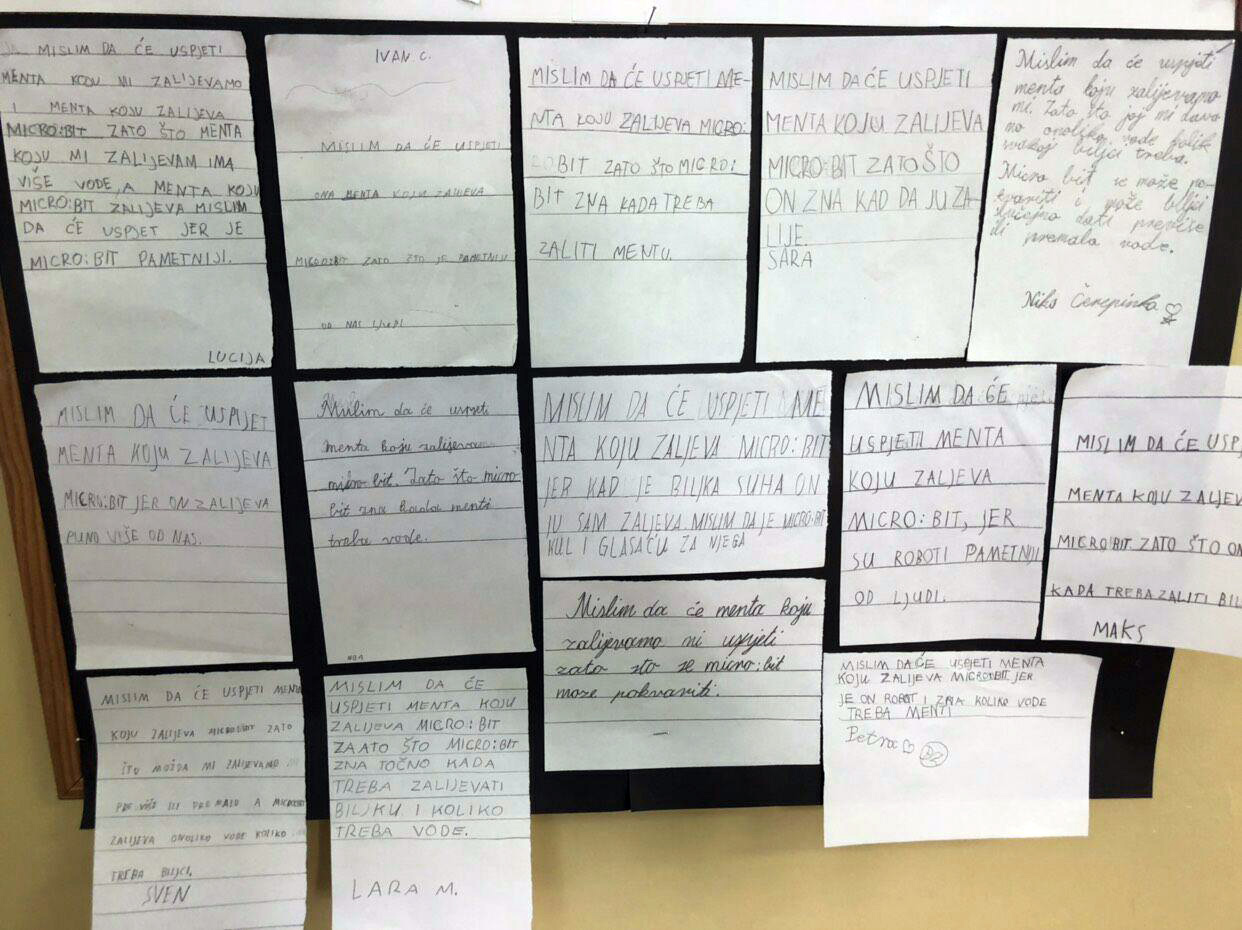 JA MISLIM DA ĆE USPJETI
MENTA KOJU MI ZALIJEVAMO
I MENTA KOJU ZALIJEVA
MICRO:BIT ZATO ŠTO MENTA
KOJU MI ZALIJEVAM IMA
VIŠE VODE, A MENTA KOJU
MICRO:BIT ZALIJEVA MISLIM
DA ĆE USPJET JER JE
MICRO:BIT PAMETNIJI.
LUCIJA
IVAN C.
MISLIM DA ĆE USPJETI
ONA MENTA KOJU ZALJEVA
MICRO:BIT ZATO ŠTO JE PAMETNIJI
OD NAS LJUDI
MISLIM DA ĆE USPJETI ME-
NTA KOJU ZALIJEVA MICRO:
BIT ZATO ŠTO MICRO:
BIT ZNA KADA TREBA
ZALITI MENTU.
MISLIM DA ĆE USPJETI
MENTA KOJU ZALIJEVA
MICRO:BIT ZATO ŠTO
ON ZNA KAD DA JU ZA-
LIJE.
SARA
Mislim da će uspjeti
menta koju zalijevamo
mi. Zato što joj mi dava
mo onoliko vode kolik
svakoj biljci treba.
Micro bit se može po-
kvariti i može biljci
slučajno dati previše
ili premalo vode.
Niko Čerepinko
MISLIM DA ĆE USPJET
MENTA KOJU ZALIJEVA
MICRO:BIT JER ON ZALIJEVA
PUNO VIŠE OD NAS.
Mislim da će uspjeti
menta koju zalijeva
mikro bit. Zato što micro
bit zna kada menti
treba vode.
MISLIM DA ĆE USPJETI ME
NTA KOJU ZALJEVA MICRO:BIT
JER KAD JE BILJKA SUHA ON
JU SAM ZALJEVA MISLIM DA JE MICRO:BIT
KUL I GLASAĆU ZA NJEGA
MISLIM DA ĆE
USPJETI MENTA
KOJU ZALJEVA
MICRO:BIT, JER
SU ROBOTI PAMETNIJI
OD LJUDI.
MISLIM DA ĆE USP
MENTA KOJU ZALJEV
MICRO:BIT ZATO ŠTO ON
KADA TREBA ZALITI BIL
MAKS
Mislim da će menta koju
zalijevamo mi uspjeti
zato što se micro:bit
može pokvariti.
MISLIM DA ĆE USPJETI MENTA
KOJU ZALIJEVA MICROBIT ZATO
ŠTO MOŽDA MI ZALIJEVAMO
PREVIŠE ILI PREMALO A MICROBIT
ZALIJEVA ONOLIKO VODE KOLIKO
TREBA BILJCI.
SVEN
MISLIM DA ĆE
USPJETI MENTA KOJU
ZALIJEVA MICRO:BIT
ZAATO ŠTO MICRO:BIT
ZNA TOČNO KADA
TREBA ZALIJEVATI
BILJKU I KOLIKO
TREBA VODE.
LARA M.
MISLIM DA ĆE USPJETI MENTA
KOJU ZALIJEVA MICRO:BIT JER
JE ON ROBOT I ZNA KOLIKO VODE
TREBA MENTI
Petra